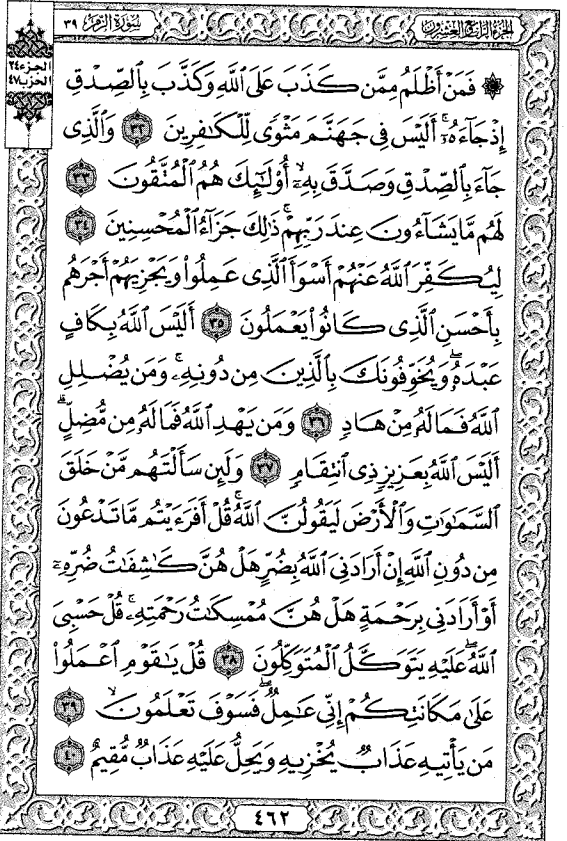 سُورَةُ الزُّمَرِ ٣٩
الجُزْءُ الرَّابِعُ وَالعِشْرُونَ
الجزء٢٤
الحزب٤٧
۞ فَمَنْ أَظْلَمُ مِمَّن كَذَبَ عَلَى ٱللَّهِ وَكَذَّبَ بِٱلصِّدْقِ
إِذْ جَآءَهُۥٓۚ أَلَيْسَ فِى جَهَنَّمَ مَثْوًى لِّلْكَٰفِرِينَ ٣٢ وَٱلَّذِى
جَآءَ بِٱلصِّدْقِ وَصَدَّقَ بِهِۦٓۙ أُو۟لَٰٓئِكَ هُمُ ٱلْمُتَّقُونَ ٣٣
لَهُم مَّا يَشَآءُونَ عِندَ رَبِّهِمْۚ ذَٰلِكَ جَزَآءُ ٱلْمُحْسِنِينَ ٣٤
لِيُكَفِّرَ ٱللَّهُ عَنْهُمْ أَسْوَأَ ٱلَّذِى عَمِلُوا۟ وَيَجْزِيَهُمْ أَجْرَهُم
بِأَحْسَنِ ٱلَّذِى كَانُوا۟ يَعْمَلُونَ ٣٥ أَلَيْسَ ٱللَّهُ بِكَافٍ
عَبْدَهُۥۖ وَيُخَوِّفُونَكَ بِٱلَّذِينَ مِن دُونِهِۦۚ وَمَن يُضْلِلِ
ٱللَّهُ فَمَا لَهُۥ مِنْ هَادٍ ٣٦ وَمَن يَهْدِ ٱللَّهُ فَمَا لَهُۥ مِن مُّضِلٍّۗ
أَلَيْسَ ٱللَّهُ بِعَزِيزٍ ذِى ٱنتِقَامٍ ٣٧ وَلَئِن سَأَلْتَهُم مَّنْ خَلَقَ
ٱلسَّمَٰوَٰتِ وَٱلْأَرْضَ لَيَقُولُنَّ ٱللَّهُۚ قُلْ أَفَرَءَيْتُم مَّا تَدْعُونَ
مِن دُونِ ٱللَّهِ إِنْ أَرَادَنِىَ ٱللَّهُ بِضُرٍّ هَلْ هُنَّ كَٰشِفَٰتُ ضُرِّهِۦٓ
أَوْ أَرَادَنِى بِرَحْمَةٍ هَلْ هُنَّ مُمْسِكَٰتُ رَحْمَتِهِۦۚ قُلْ حَسْبِىَ
ٱللَّهُۖ عَلَيْهِ يَتَوَكَّلُ ٱلْمُتَوَكِّلُونَ ٣٨ قُلْ يَٰقَوْمِ ٱعْمَلُوا۟
عَلَىٰ مَكَانَتِكُمْ إِنِّى عَٰمِلٌۖ فَسَوْفَ تَعْلَمُونَۙ ٣٩
مَن يَأْتِيهِ عَذَابٌ يُخْزِيهِ وَيَحِلُّ عَلَيْهِ عَذَابٌ مُّقِيمٌ ٤٠
٤٦٢